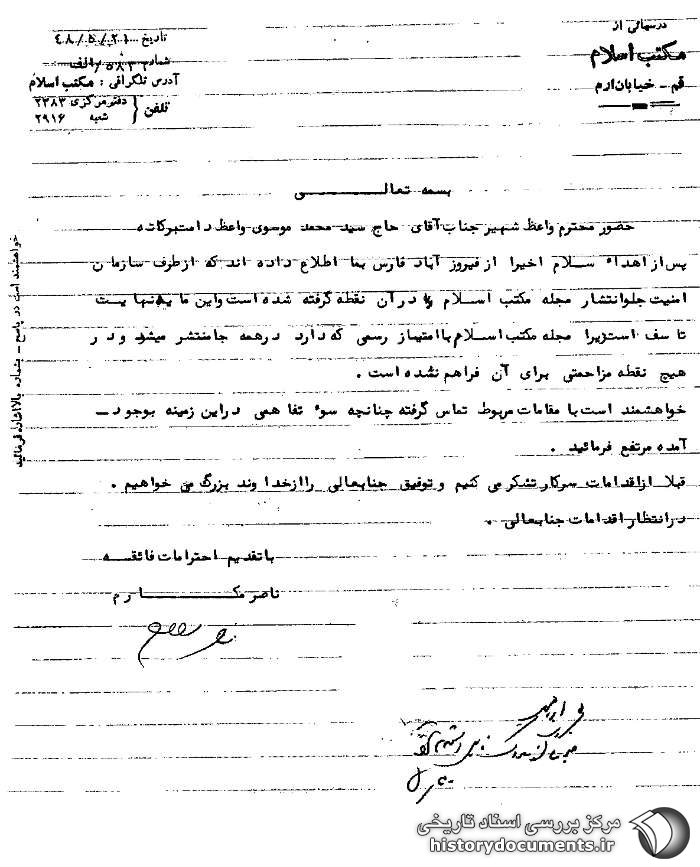 درسهائی از
مکتب اسلام
قم - خیابان ارم
تاریخ ۴۸/۵/۲۱
شماره ۵۸۳۲/الف
آدرس تلگرافی : مکتب اسلام
تلفن { دفتر مرکزی ۲۳۸۳
شعبه ۲۹۱۶
بسمه تعالی
حضور محترم واعظ شهیر جناب آقای حاج سید محمد موسوی واعظ دامت برکاته
پس از اهداء سلام اخیرا از فیروز آباد فارس بما اطلاع داده اند که از طرف سازمان
امنیت جلو انتشار مجله مکتب اسلام را در آن نقطه گرفته شده است واین مایه نهایت
تاسف است زیرا مجله مکتب اسلام با امتیاز رسمی که دارد در همه جا منتشر میشود و در
هیچ نقطه مزاحمتی برای آن فراهم نشده است .
خواهشمند است با مقامات مربوط تماس گرفته چنانچه سوء تفاهمی در این زمینه بوجود -
آمده مرتفع فرمائید .
قبلا از اقدامات سرکار تشکر می کنیم و توفیق جنابعالی را از خداوند بزرگ می خواهیم .
در انتظار اقدامات جنابعالی .
با تقدیم احترامات فائقه
ناصر مکارم
خواهشمند است در پاسخ - بشماره بالا اشاره فرمائید
مرکز بررسی اسناد تاریخی
historydocuments.ir